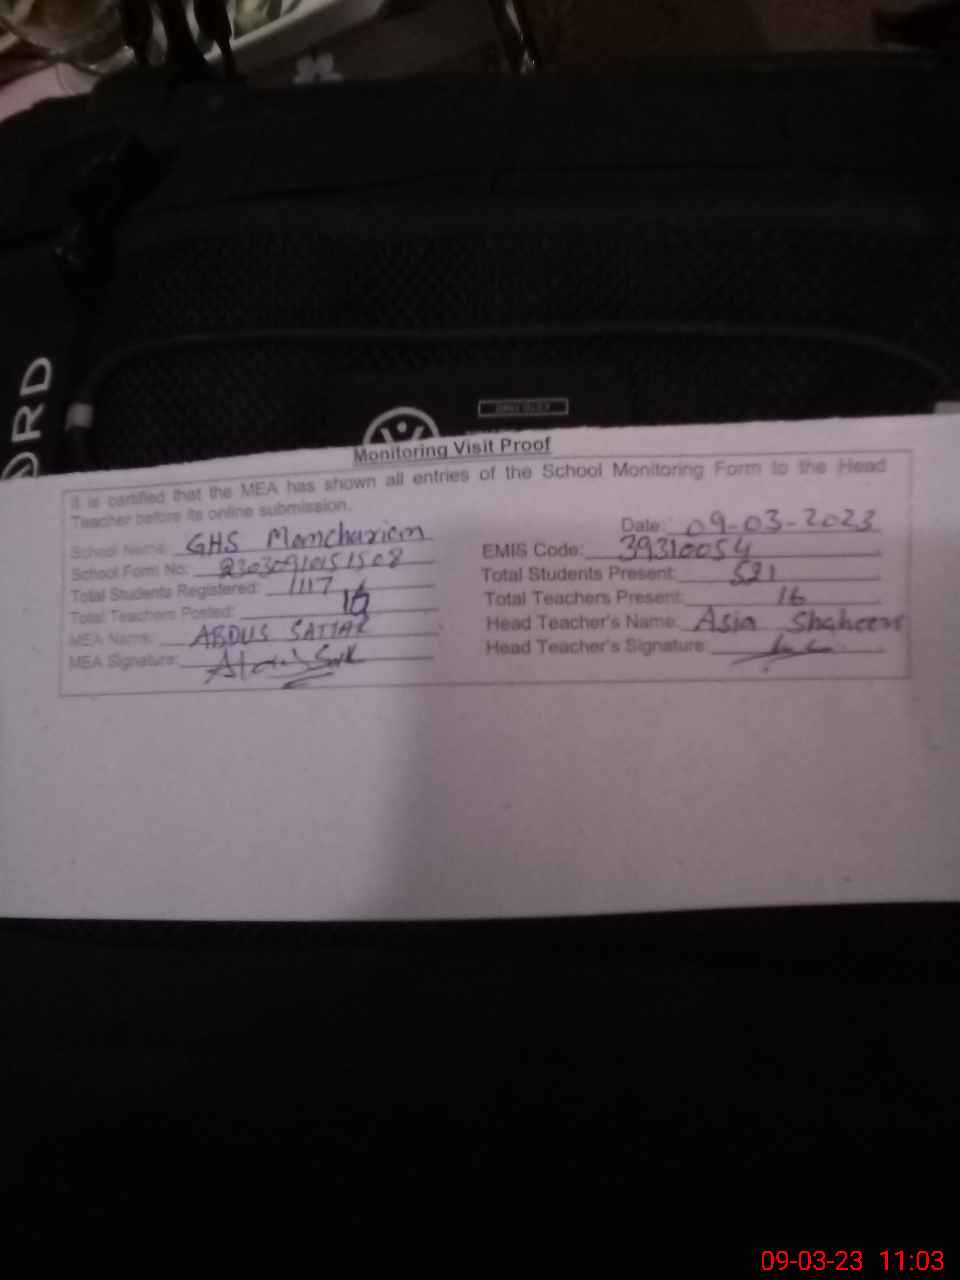 ORD
Monitoring Visit Proof
It is certified that the MEA has shown all entries of the School Monitoring Form to the Head
Teacher before its online submission.
Date: 09-03-2023
School Name: GHS Mamcharian
EMIS Code: 39310054
School Form No: 23030910151508
Total Students Present: 521
Total Students Registered: 1117
Total Teachers Present: 16
Total Teachers Posted: 16
Head Teacher's Name: Asia Shaheen
MEA Name: ABDUS SATTAR
Head Teacher's Signature:
MEA Signature:
09-03-23 11:03